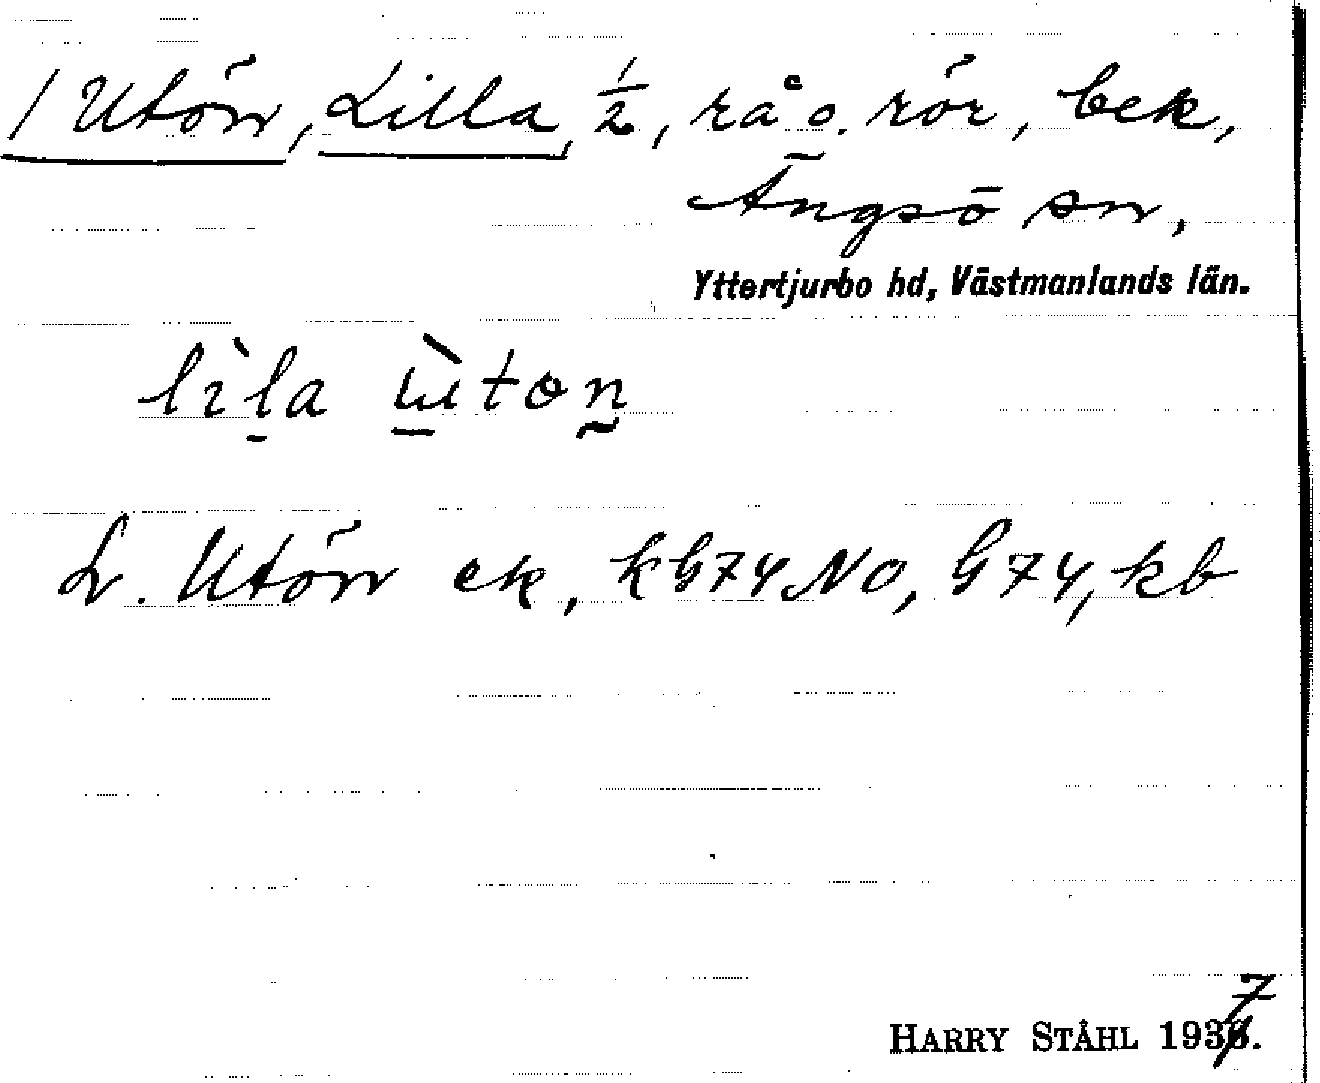 / Utön, Lilla, ½, rå o. rör, bek,
Ängsö sn,
Yttertjurbo hd, Västmanlands län.
lìla ɯ̀ton
L. Utön ek, kG74NO, G74, kb
HARRY STÅHL 1937.